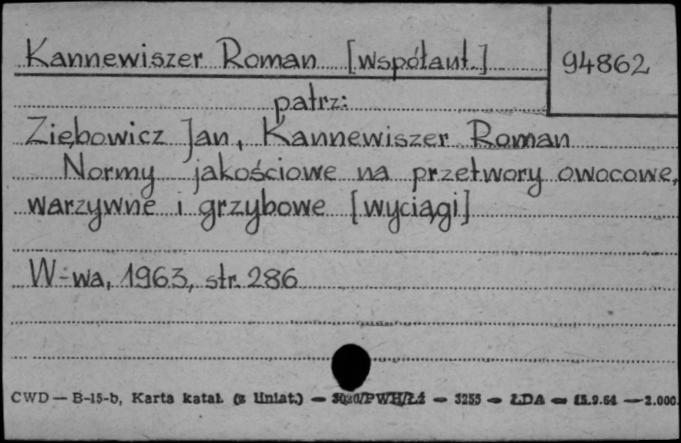 Kannewiszer Roman [współaut.] 94862
patrz:
Ziębowicz Jan, Kannewiszer Roman
Normy jakościowe na przetwory owocowe,
warzywne i grzybowe [wyciągi]
W-wa, 1963, str. 286
CWD — B-15-b, Karta katal. (z liniat.) — 3020/PWH/Łż — 3255 — ŁDA — 15.9.64 — 2.000.